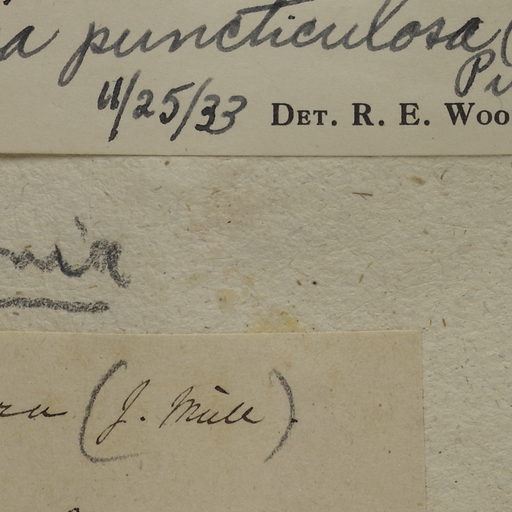 a puncticulosa (
11/25/33 DET. R. E. WOO
(J. Müll)